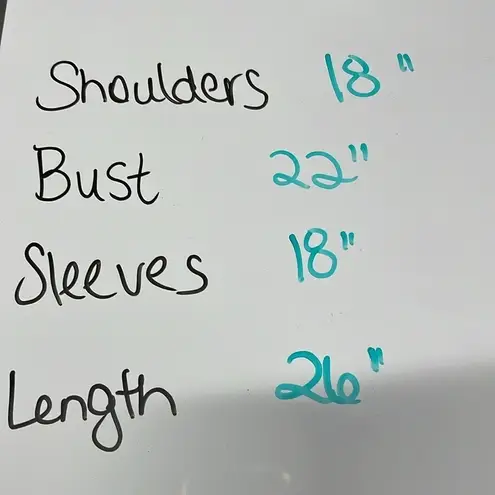 Shoulders 18"
Bust 22"
Sleeves 18"
Length 26"